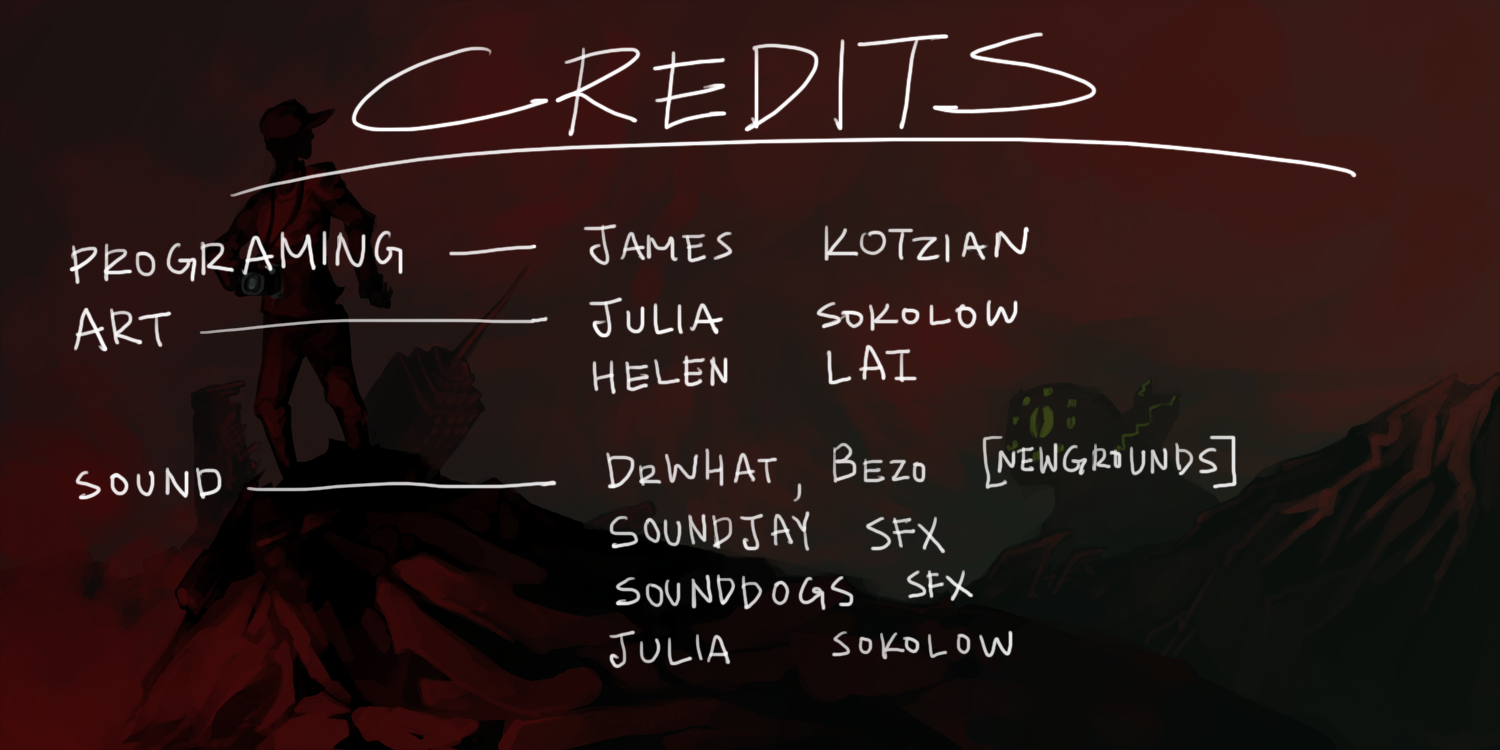 CREDITS
PROGRAMING — JAMES KOTZIAN
ART — JULIA SOKOLOW
HELEN LAI
SOUND — DRWHAT, BEZO [NEWGROUNDS]
SOUNDJAY SFX
SOUNDDOGS SFX
JULIA SOKOLOW